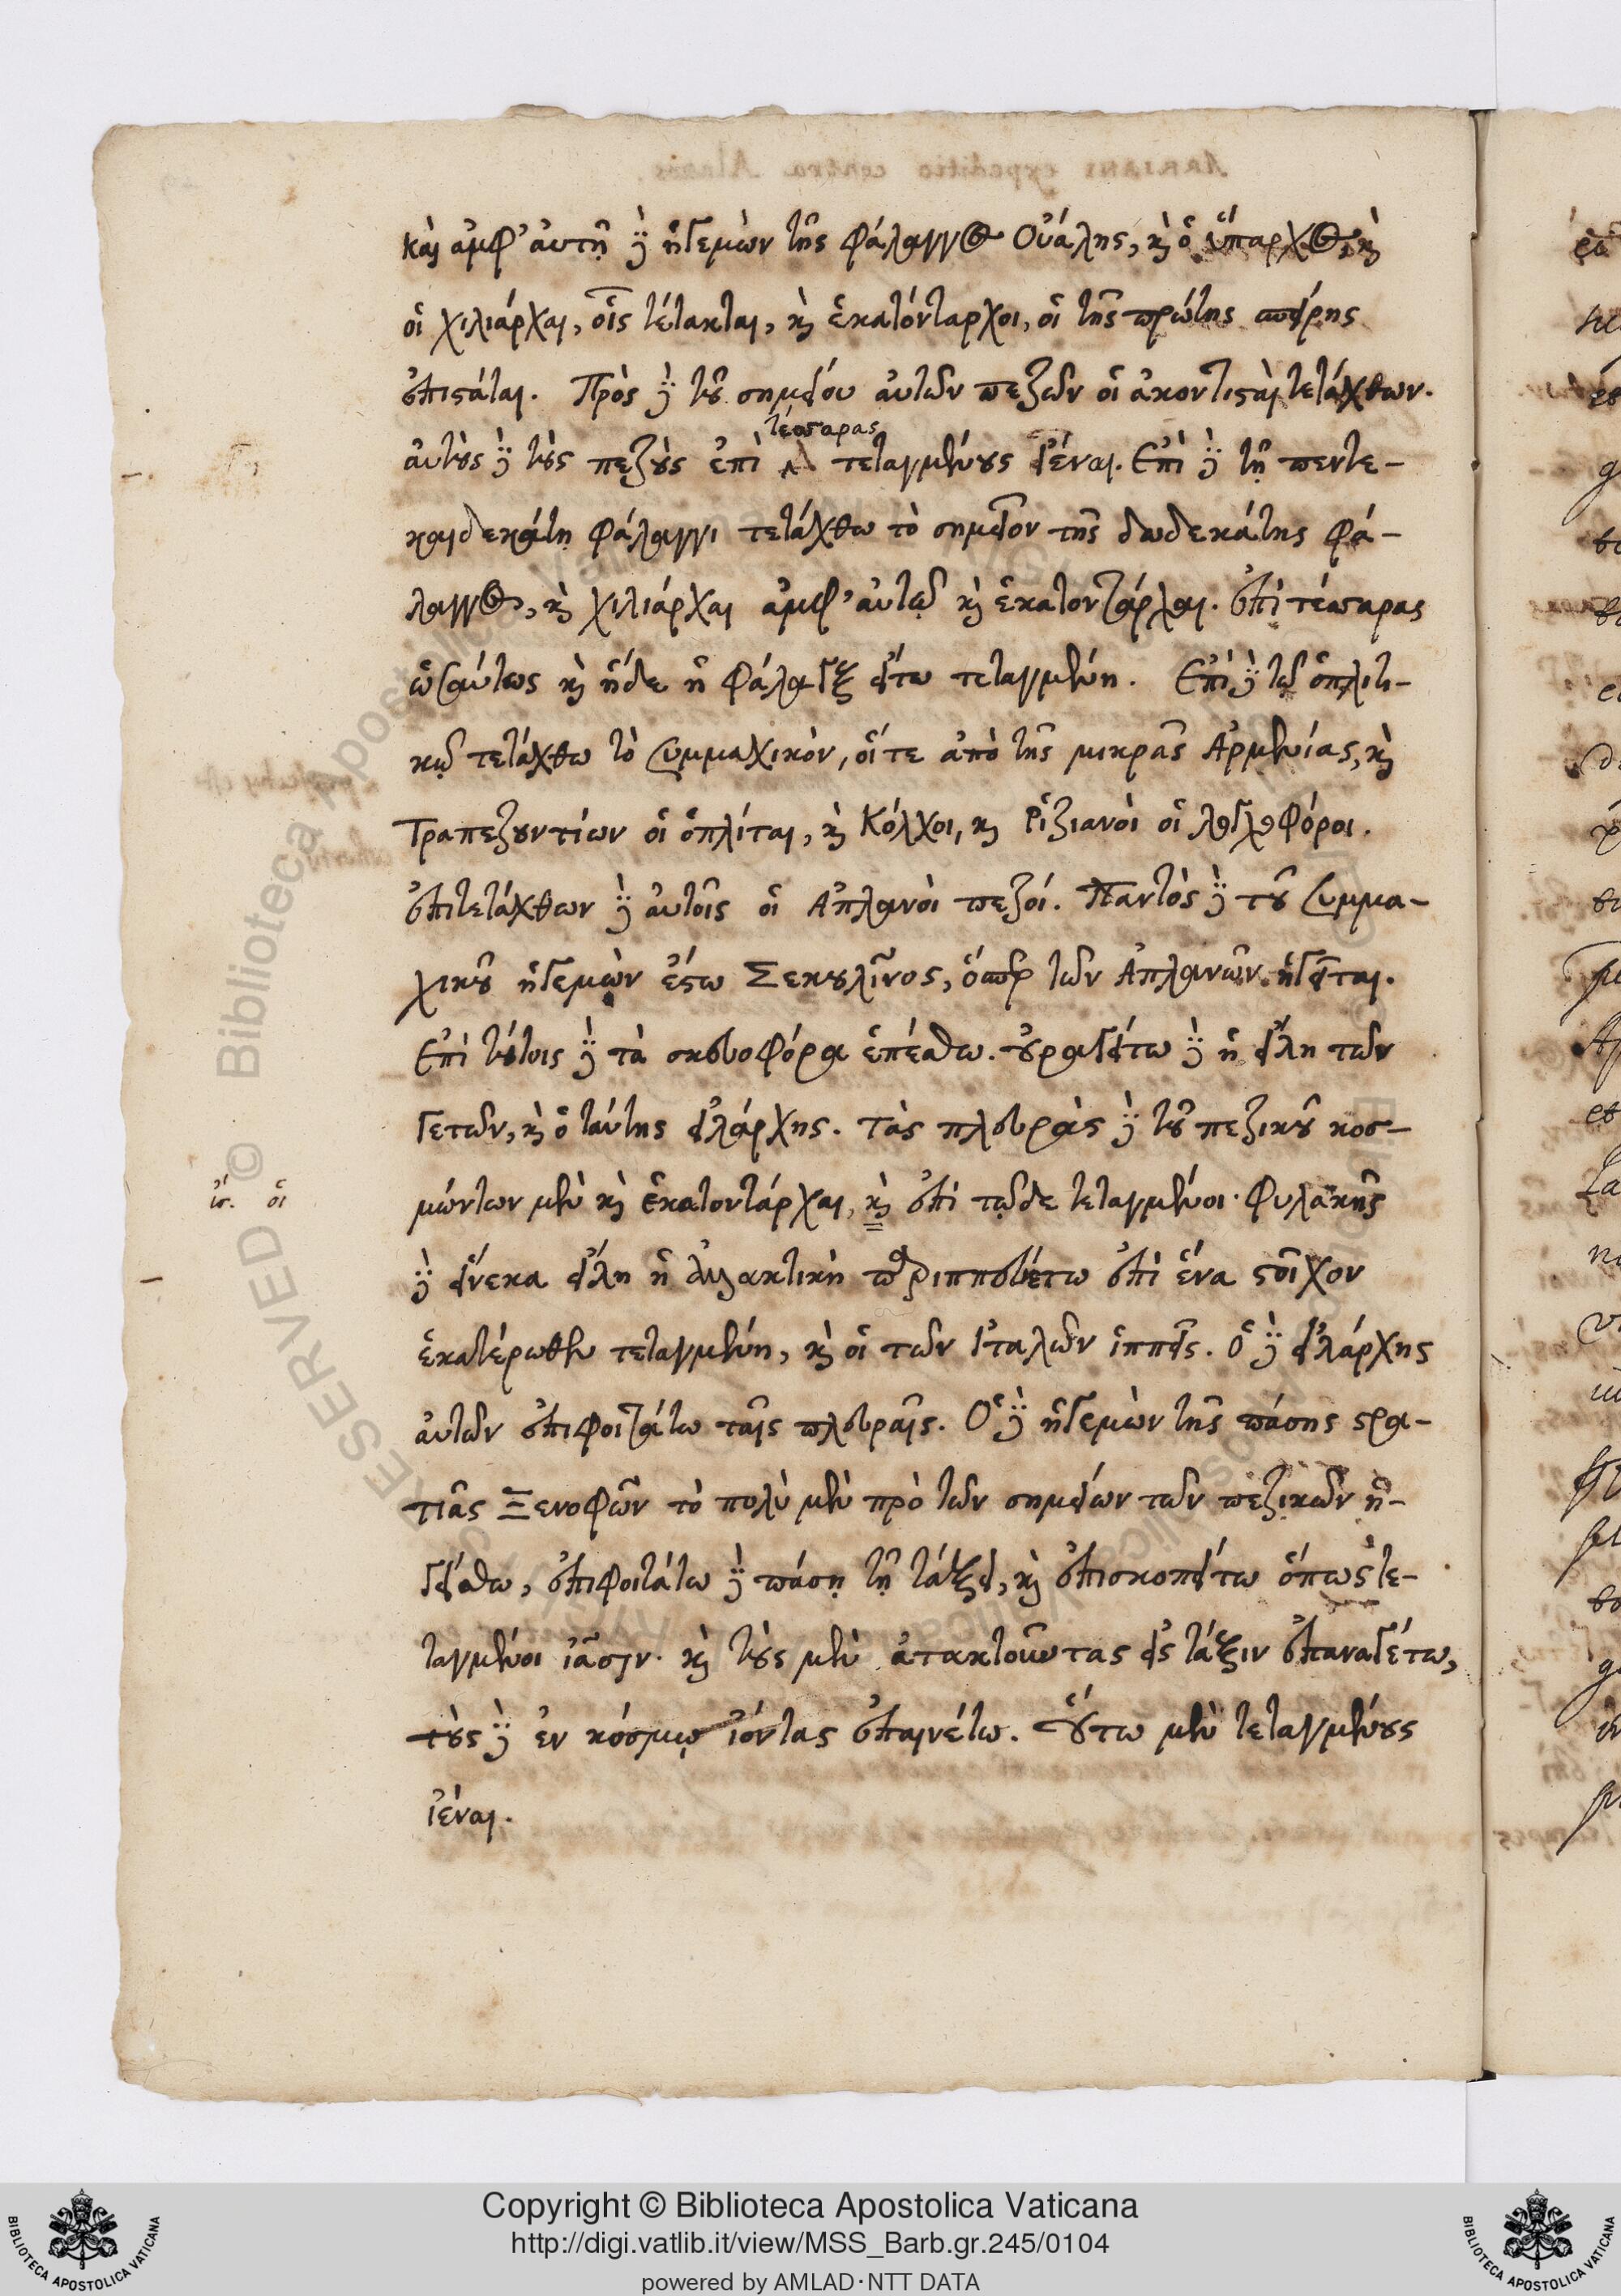 καὶ ἀμφ' αὐτῇ δὲ ἡγεμὼν τῆς φάλαγγος Οὐάλης, καὶ ὁ ὕπαρχος, καὶ
οἱ χιλιάρχαι, οἷς τέτακται, καὶ ἑκατόνταρχοι, οἱ τῆς πρώτης σπείρης
ἐπιστάται. Πρὸς δὲ τοῦ σημείου αὐτῶν πεζῶν οἱ ἀκοντισταὶ τετάχθων.
τέσσαρας
αὐτοὺς δὲ τοὺς πεζοὺς ἐπὶ Δ τεταγμένους ἰέναι. Ἐπὶ δὲ τῇ πεντε-
καιδεκάτῃ φάλαγγι τετάχθω τὸ σημεῖον τῆς δωδεκάτης φά-
λαγγος, καὶ χιλιάρχαι ἀμφ' αὐτῷ καὶ ἑκατοντάρχαι. ἐπὶ τέσσαρας
ὡσαύτως καὶ ἥδε ἡ φάλαγξ εἴτω τεταγμένη. Ἐπὶ δὲ τῷ ὁπλιτι-
κῷ τετάχθω τὸ συμμαχικὸν, οἵ τε ἀπὸ τῆς μικρᾶς Ἀρμενίας, καὶ
Τραπεζουντίων οἱ ὁπλίται, καὶ Κόλχοι, καὶ Ῥιζιανοὶ οἱ λογχοφόροι.
ἐπιτετάχθων δὲ αὐτοῖς οἱ Ἀπλανοὶ πεζοί. Παντὸς δὲ τοῦ συμμα-
χικοῦ ἡγεμὼν ἔστω Σεκουλῖνος, ὅσπερ τῶν Ἀπλανῶν ἡγεῖται.
Ἐπὶ τούτοις δὲ τὰ σκευοφόρα ἑπέσθω. οὐραγείτω δὲ ἡ εἴλη τῶν
Γετῶν, καὶ ὁ ταύτης εἰλάρχης. Τὰς πλευρὰς δὲ τοῦ πεζικοῦ κοσ-
ἴσ. οἱ
μώντων μὲν καὶ ἑκατοντάρχαι, καὶ ἐπὶ τῷδε τεταγμένοι. Φυλακῆς
δὲ εἵνεκα εἴλη ἡ διηακτικὴ παριππευέτω ἐπὶ ἕνα στοῖχον
ἑκατέρωθεν τεταγμένη, καὶ οἱ τῶν Ἰταλῶν ἱππεῖς. Ὁ δὲ εἰλάρχης
αὐτῶν ἐπιφοιτάτω ταῖς πλευραῖς. Ὁ δὲ ἡγεμὼν τῆς πάσης στρα-
τιᾶς Ξενοφῶν τὸ πολὺ μὲν πρὸ τῶν σημείων τῶν πεζικῶν ἡ-
γείσθω, ἐπιφοιτάτω δὲ πάσῃ τῇ τάξει, καὶ ἐπισκοπείτω ὅπως τε-
ταγμένοι ἴασιν. καὶ τοὺς μὲν ἀτακτοῦντας εἰς τάξιν ἐπαναγέτω,
τοὺς δὲ ἐν κόσμῳ ἰόντας ἐπαινέτω. Οὕτω μὲν τεταγμένους
ἰέναι.
© Biblioteca Apostolica Vaticana
Copyright © Biblioteca Apostolica Vaticana
http://digi.vatlib.it/view/MSS_Barb.gr.245/0104
powered by AMLAD·NTT DATA
BIBLIOTECA APOSTOLICA VATICANA
BIBLIOTECA APOSTOLICA VATICANA